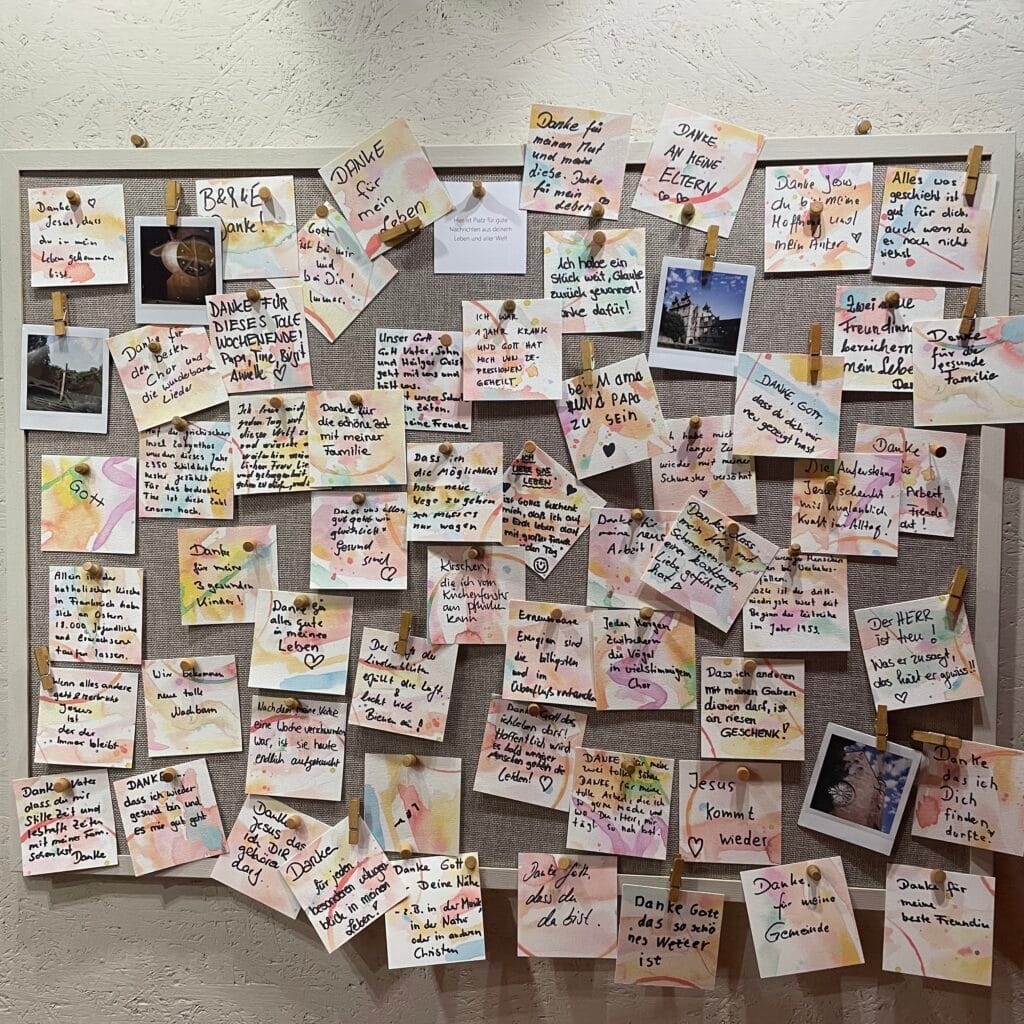 Danke
Jesus, dass
du in mein
Leben gekommen
bist.
B&R&E
Danke!
DANKE
für
mein
Leben
Gott
ist bei mir
und
bei Dir
Immer.
Hier ist Platz für gute
Nachrichten aus deinem
Leben und aller Welt!
Danke für
meinen Mut
und meine
diese. Danke
für mein
Leben
DANKE
AN MEINE
ELTERN
Danke Jesus
du bist meine
Hoffnung und
mein Anker
Alles was
geschieht ist
gut für dich,
auch wenn du
es noch nicht
siehst.
DANKE FÜR
DIESES TOLLE
WOCHENENDE!
Papi, Tine, Birgit
Amelie
Ich habe ein
Stück weit, Glaube
zurück gewonnen!
Danke dafür!
Zwei
Freundinnen
bereichern
mein Leben
Danke
Danke
für die
gesunde
familie
Danke für
den besten
Chor und
die wunderbaren
Lieder
Unser Gott
Gott Vater, Sohn
und Heiliger Geist
geht mit uns und
hält uns
in Zeiten.
meine Freude
ICH WAR
1 JAHR KRANK
UND GOTT HAT
MICH VON DE-
PRESSIONEN
GEHEILT.
bei Mama
UND PAPA
ZU SEIN
DANKE GOTT,
dass du dich mir
neu gezeigt hast
Auf der griechischen
Insel Zakynthos
wurden dieses Jahr
2350 Schildkröten-
nester gezählt.
Für das bedrohte
Tier ist diese Zahl
enorm hoch.
Ich freue mich
jeden Tag
Danke für
die schöne Zeit
mit meiner
familie
Dass ich
die Möglichkeit
habe neue
Wege zu gehen
und
sie wagen
ICH
LIEBE DAS
LEBEN
ist Gottes Geschenk
an mich, dass ich auf
der Erde leben darf
mit großer Freude
jeden Tag!
habe mich
langer Zeit
wieder mit meiner
Schwester versöhnt
Die Auferstehung
Jesu schenkt
mir unglaublich
Kraft im Alltag!
Danke
Arbeit,
Freunde
GOTT
Danke
für meine
3 gesunden
Kinder!
Dass es uns allen
gut geht. wir
glücklich &
gesund
sind
Danke für
meine neue
Arbeit!
Danke, dass
mein
Schatz in
einer kostbaren
Liebe geführt
hat
Menschen
bei Verkehrs-
unfällen.
2024 ist der dritt-
niedrigste Wert seit
Beginn der Zeitreihe
im Jahr 1953.
Allein in der
katholischen Kirche
in Frankreich haben
sich an Ostern
18.000 Jugendliche
und Erwachsene
taufen lassen.
Danke für
alles Gute
in meinem
Leben
Kirschen,
die ich vom
Küchenfenster
aus pflücken
kann
Erneuerbare
Energien sind
die billigsten
und im
Überfluss vorhanden
Jeden Morgen
zwitschern
die Vögel
in vielstimmigem
Chor
Der HERR
ist treu!
Was er zusagt,
das hält er gewiss!!
Wenn alles andere
geht & zerbricht
Jesus
ist
der der
immer bleibt
Wir bekommen
neue tolle
Nachbarn
Der Duft der
Lindenblüte
erfüllt die Luft
&
lockt viele
Bienen an!
Dass ich anderen
mit meinen Gaben
dienen darf, ist
ein riesen
GESCHENK!
Nachdem meine Katze
eine Woche verschwunden
war, ist sie heute
endlich aufgetaucht
Danke Gott das
ich leben darf!
Hoffentlich wird
es bald weniger
Menschen geben die
leiden!
Danke
das ich
Dich
finden
durfte
Danke Vater
dass du mir
Stille Zeit und
lebhafte Zeiten
mit meiner Fam.
schenkst
Danke
DANKE
dass ich wieder
gesund bin und
es mir gut geht
DANKE für meine
zwei tollen Söhne
DANKE, für meine
tolle Arbeit, die ich
so gerne mache und
wo Du, Herr, mir
tägl. so nah bist!
Jesus
kommt
wieder
Danke
Jesus das
ich DIR
gehören
darf.
Danke
für jeden
besonderen
blick in meinem
Leben!
Danke Gott
Deine Nähe
z.B. in der Musik,
in der Natur
oder in anderen
Christen
Danke Gott,
dass du
da bist.
Danke Gott
das so schö
nes Wetter
ist
Danke,
für meine
Gemeinde
Danke für
meine
beste Freundin